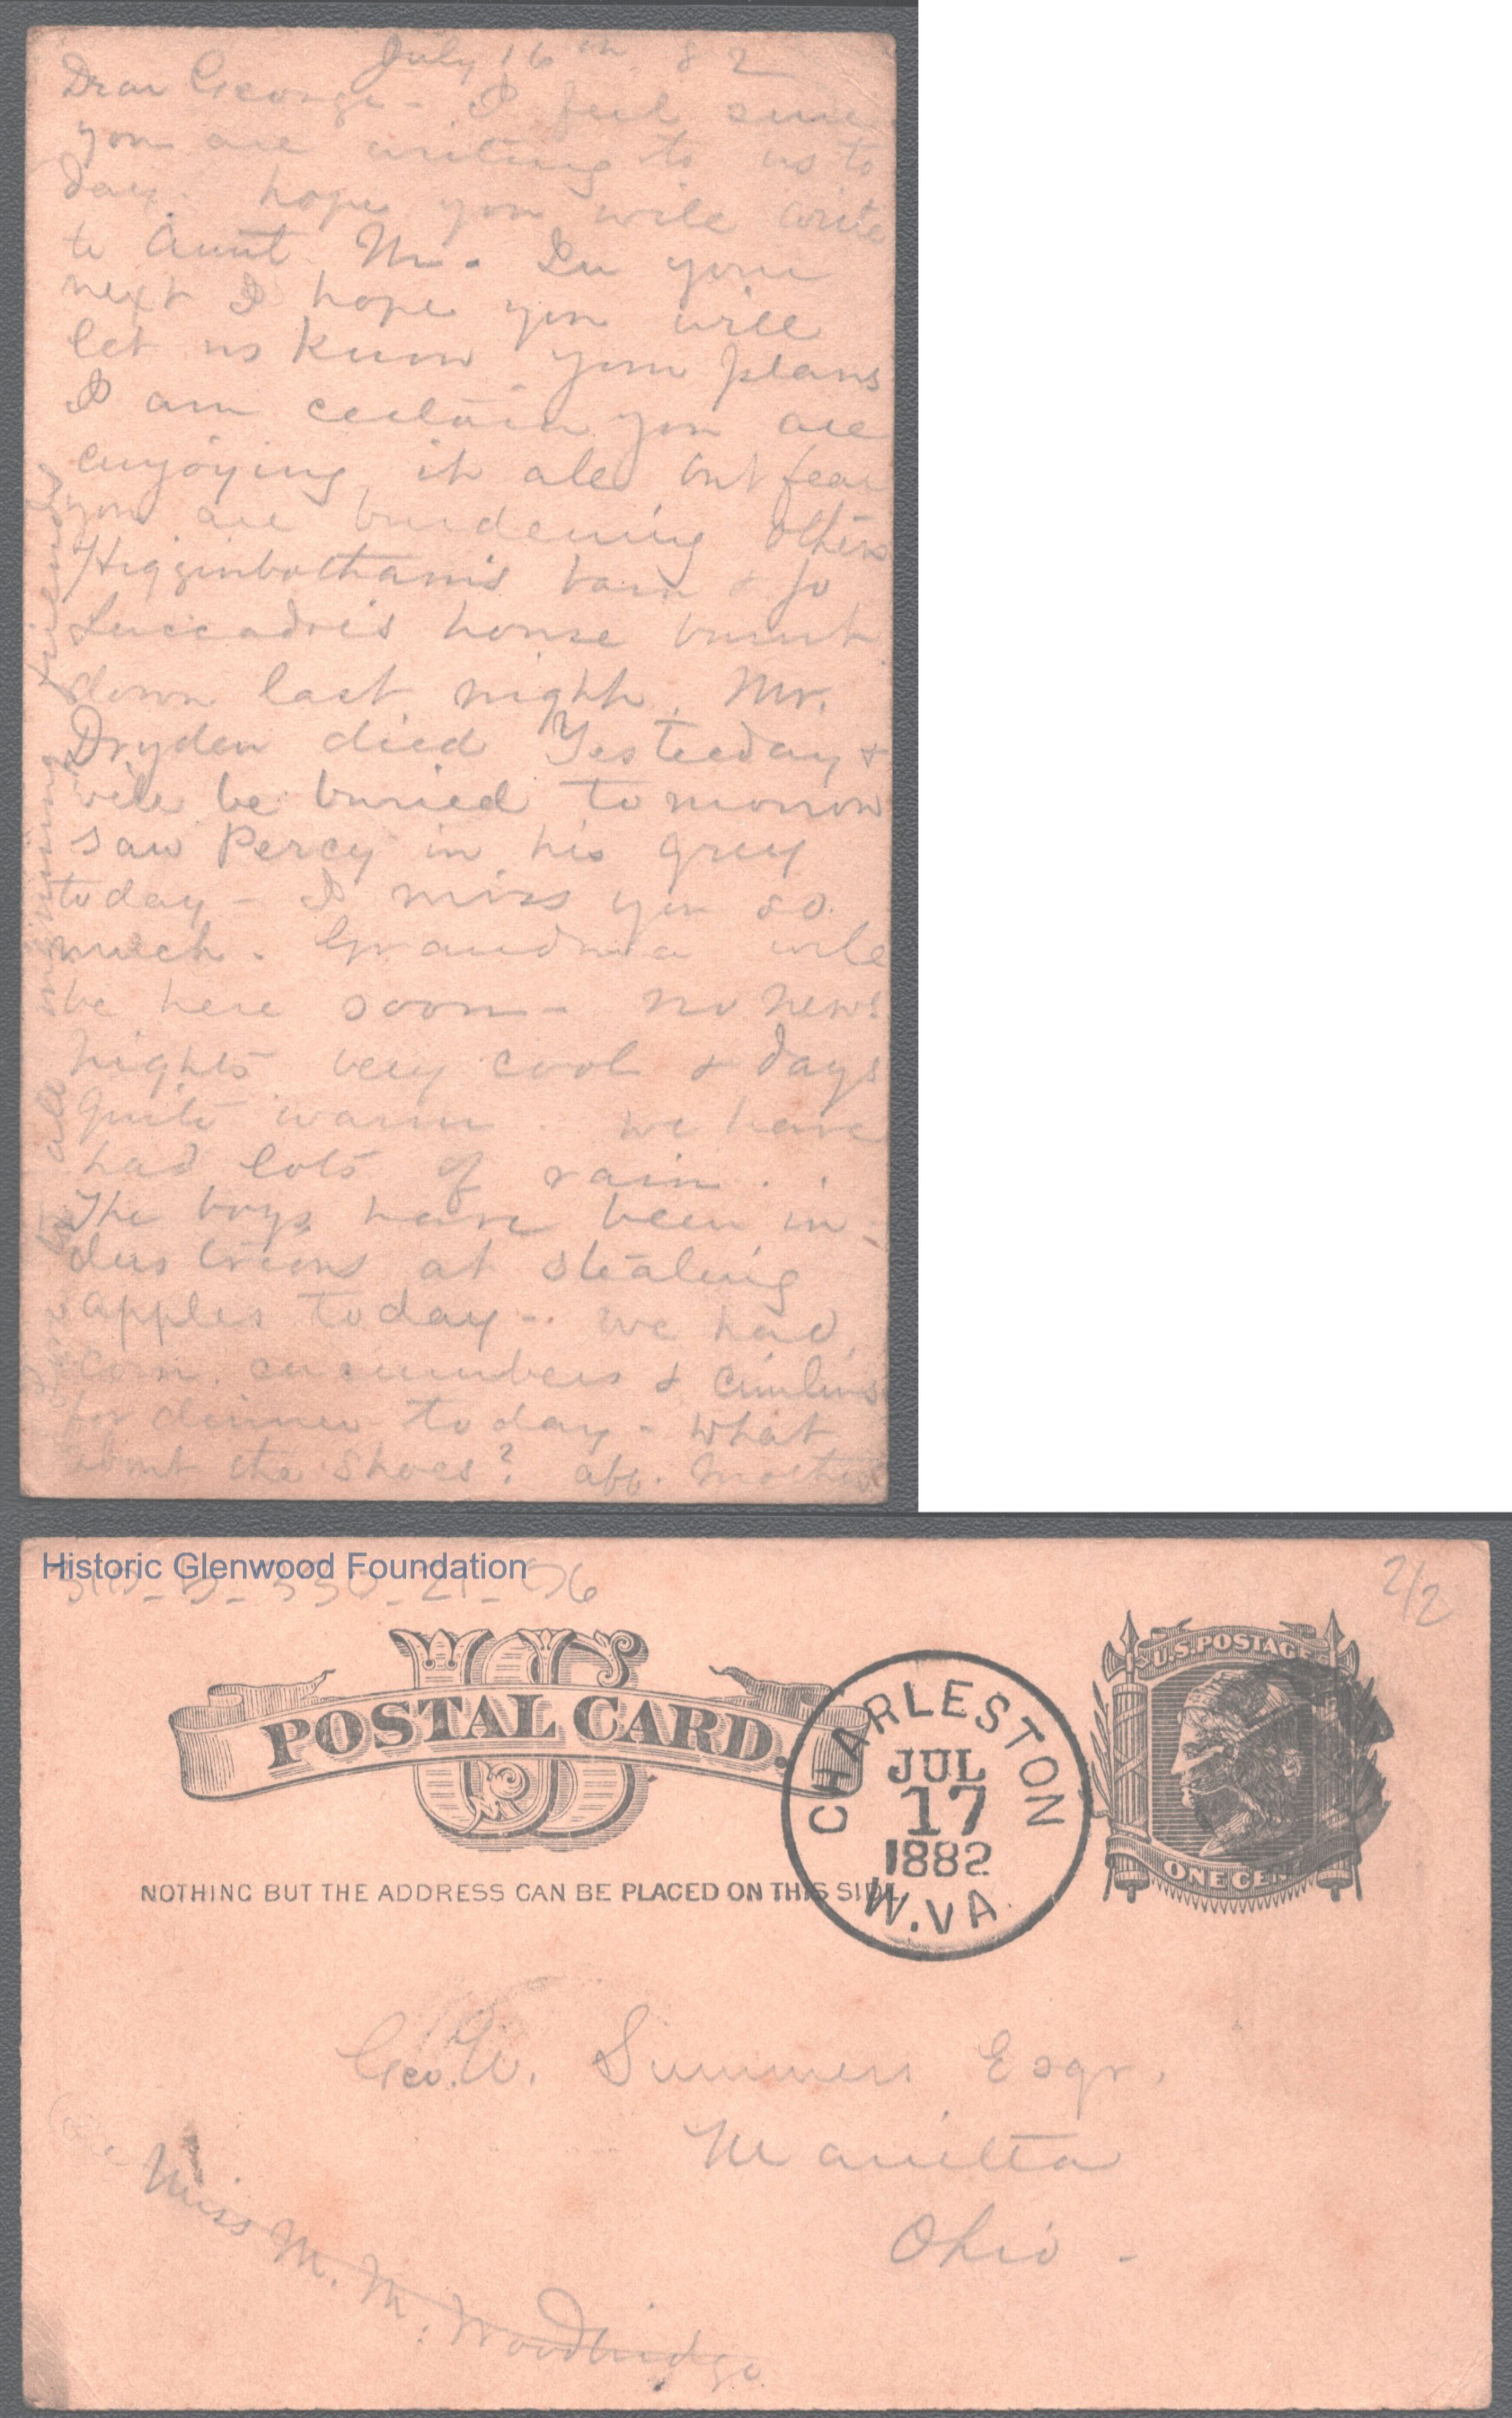 July 16th 82
Dear George - I feel sure
you are writing to us to
day. hope you will write
to Aunt M. In your
next I hope you will
let us know your plans
I am certain you are
enjoying it all but fear
you are burdening others
Higginbotham's barn & Jo
house burnt
down last night. Mr.
Dryden died Yesterday &
will be buried tomorrow
saw Percy in his grey
today - I miss you so
much. Grandma will
be here soon - no news
nights very cool & days
quite warm. we have
had lots of rain..
The boys have been in-
dustrious at stealing
apples today - we had
corn, cucumbers & cimlins
for dinner today - What
about the shoes? aff. Mother
to all inquiring friends
Historic Glenwood Foundation
2/2
U.S. POSTAGE
ONE CENT
US
POSTAL CARD.
NOTHING BUT THE ADDRESS CAN BE PLACED ON THIS SIDE
CHARLESTON
JUL
17
1882
W.VA.
Geo. W. Summers Esqr.
Marietta
Ohio -
Miss M. M. Woodbridge